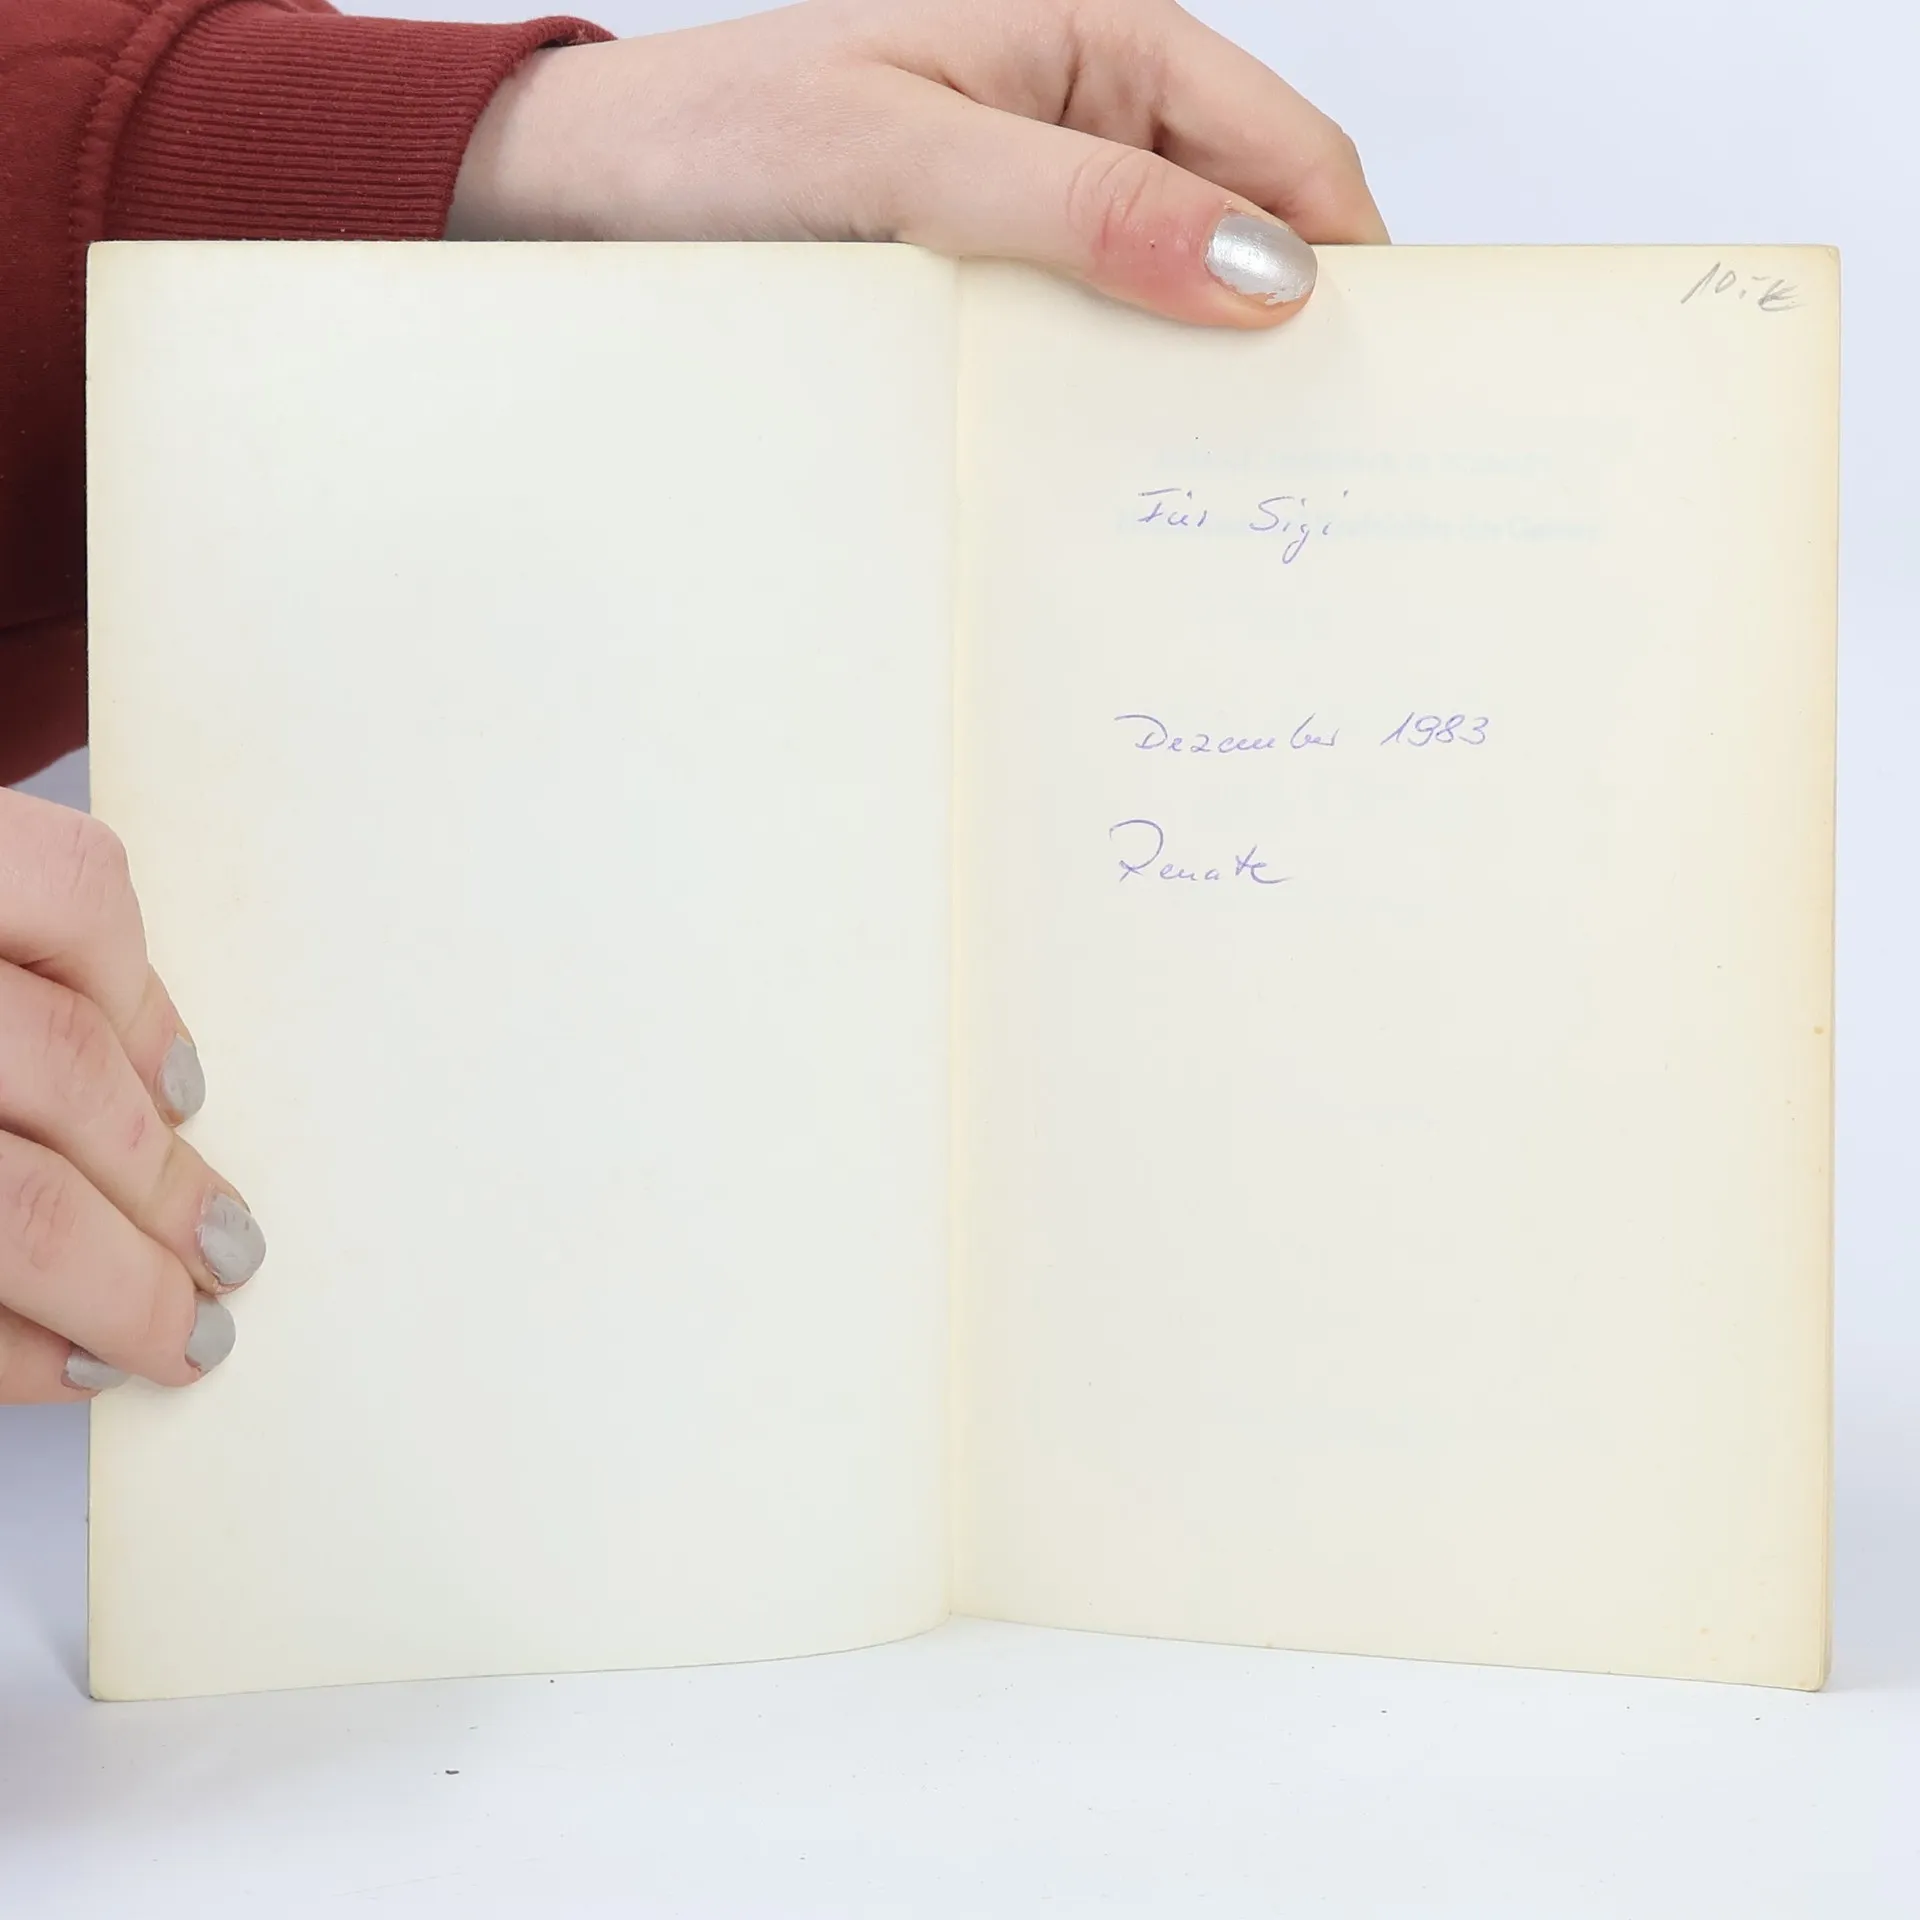 10.-€
Für Sigi
Dezember 1983
Renate